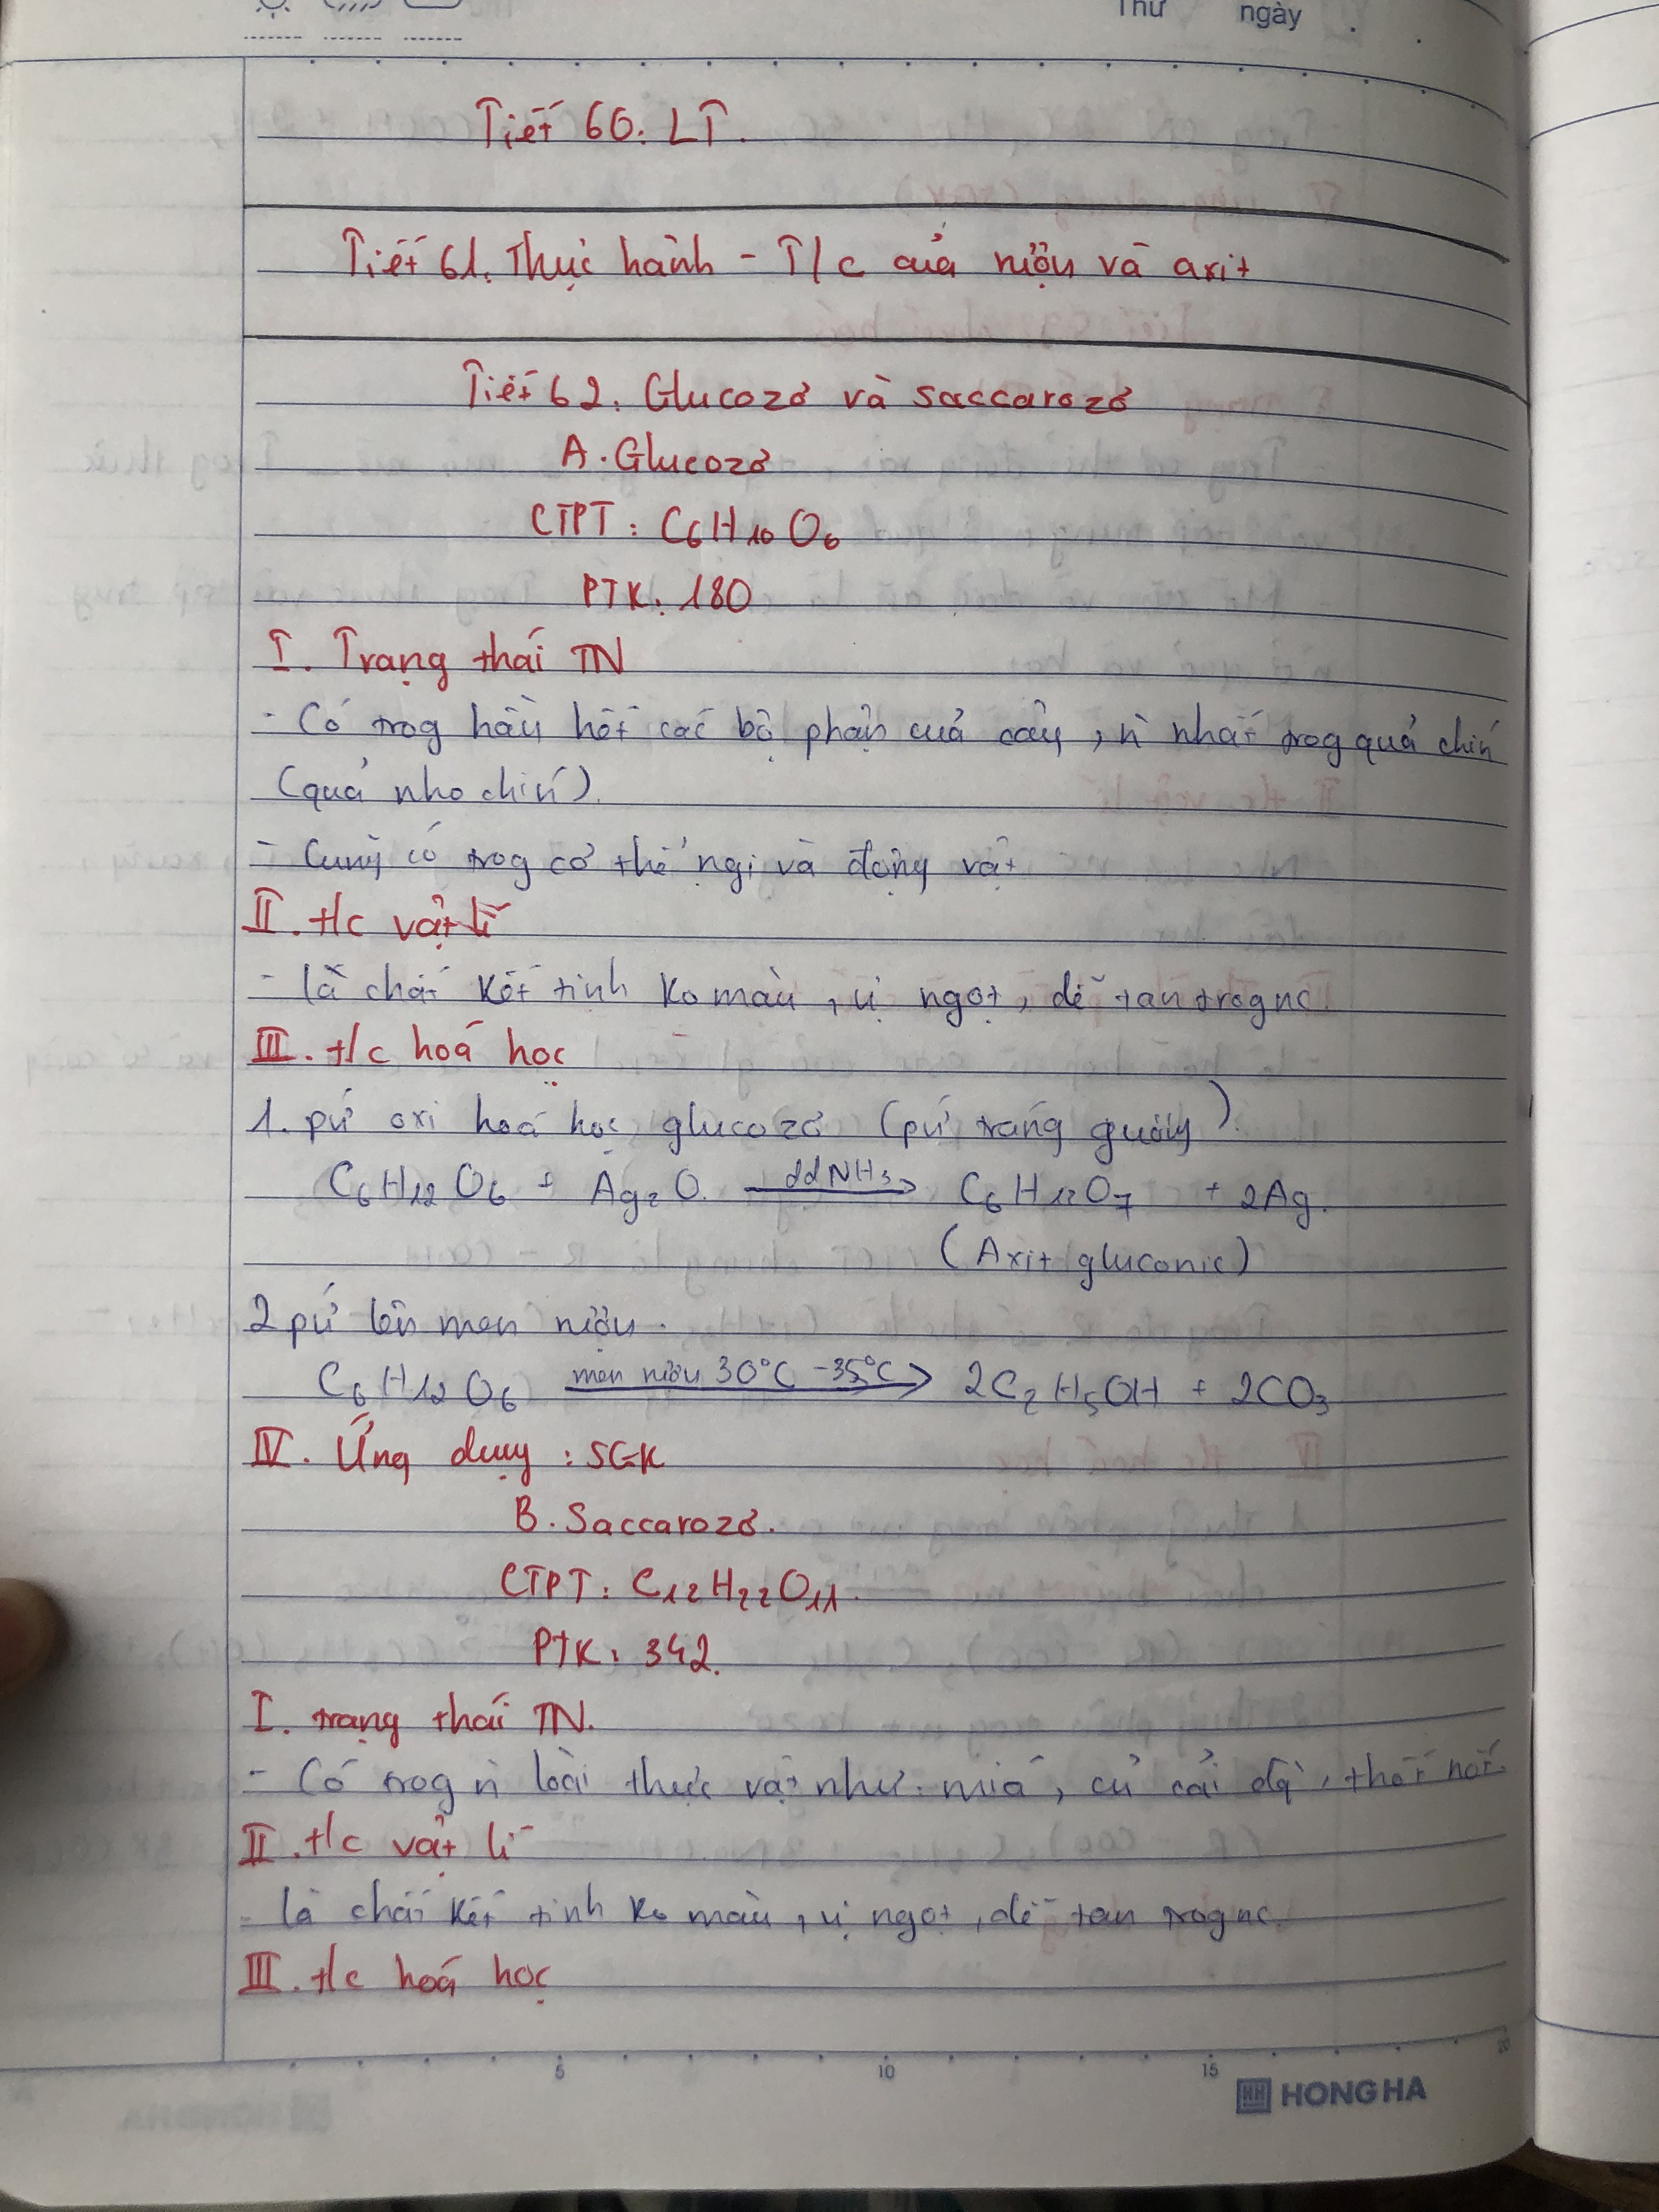 Thứ ngày
Tiết 60: LT.
Tiết 61. Thực hành - T/c của rượu và axit
Tiết 62: Glucozơ và saccarozơ
A. Glucozơ
CTPT: C₆H₁₀O₆
PTK: 180
I. Trạng thái TN
- Có trog hầu hết các bộ phận của cây, n̄ nhất trog quả chín
(quả nho chín).
- Cũng có trog cơ thể ng̣i và động vật
II. t/c vật lí
- là chất kết tinh ko màu, vị ngọt, dễ tan trog nc.
III. t/c hoá học
1. pứ oxi hoá học glucozơ (pứ tráng gương).
C₆H₁₂O₆ + Ag₂O ddNH₃→ C₆H₁₂O₇ + 2Ag.
(Axit gluconic)
2 pứ lên men rượu.
C₆H₁₂O₆ men rượu 30°C - 35°C→ 2C₂H₅OH + 2CO₃
IV. Ứng dụng: SGK
B. Saccarozơ.
CTPT: C₁₂H₂₂O₁₁.
PTK: 342.
I. trạng thái TN.
- Có trog n̄ loài thực vật như: mía, củ cải đg̀, thốt nốt.
II. t/c vật lí
- là chất kết tinh ko màu, vị ngọt, dễ tan trog nc.
III. t/c hoá học
5 10 15 20
HH HONG HA